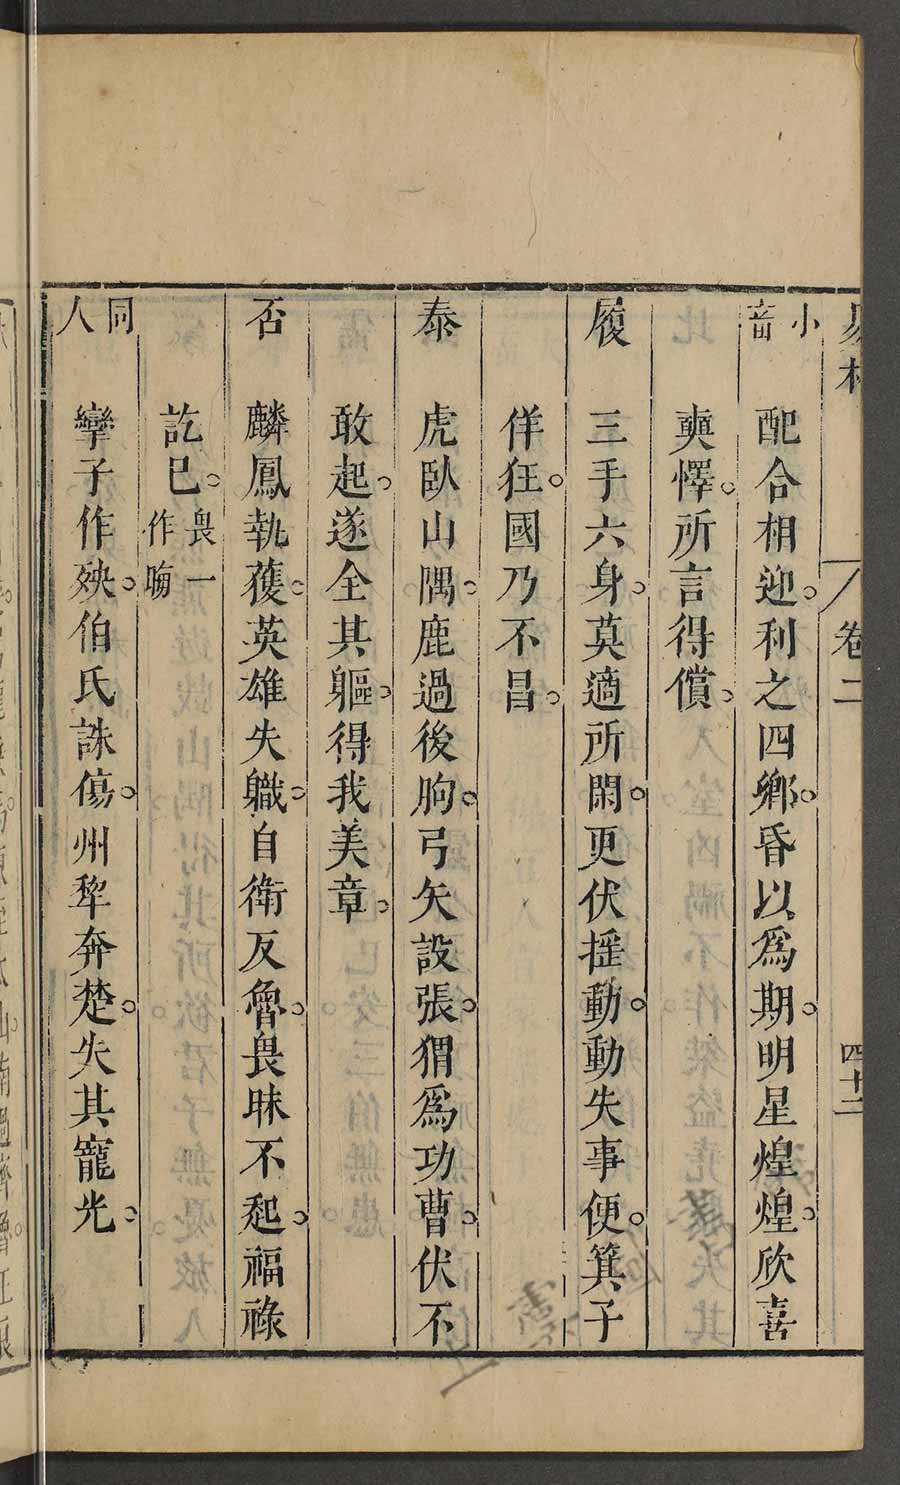 易林 卷二 四十二
小畜 配合相迎。利之四鄉。昏以爲期。明星煌煌。欣喜
奭懌。所言得償。
履 三手六身。莫適所閑。更伏搖動。動失事便。箕子
佯狂。國乃不昌。
泰 虎臥山隅。鹿過後朐。弓矢設張。猬爲功曹。伏不
敢起。遂全其軀。得我美章。
否 麟鳳執獲。英雄失職。自衛反魯。畏昧不起。福祿
訖巳。畏一作晦
同人 孿子作殃。伯氏誅傷。州犂奔楚。失其寵光。